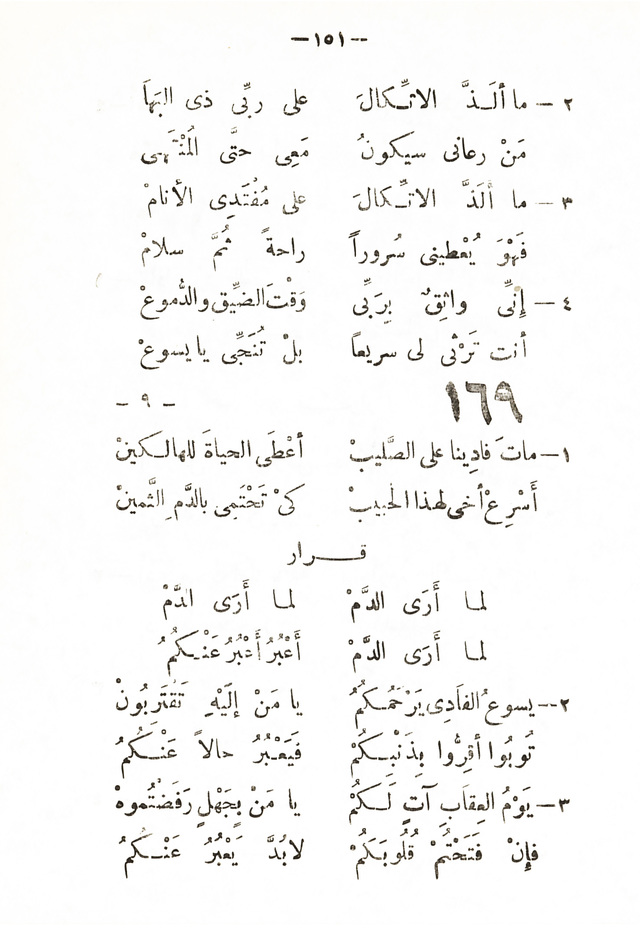 —١٥١—
٢— ما ألَـذَّ الاتـِّـكالَ على ربِّى ذى البَهاَ
مَنْ رعانى سيكونُ مَعِى حتَّى الْمُنْتَهى
٣— ما أَلَذَّ الاتِّـكالَ على مُفْتَدِى الأنامْ
فَهْوَ يُعْطينى سُروراً راحةً ثُمَّ سلامْ
٤— إنِّى واثِقٌ بِرَبِّى وَقْتَ الضِّيقِ والدُّموعْ
أنت تَرْثى لى سريعاً بلْ تُنَجِّى يا يسوعْ
١٦٩ – ٩ –
١— ماتَ فادِينا على الصَّليبْ أعْطَى الحياةَ للهالـكينْ
أَسْرِعْ أخى لهذا الحبيبْ كىْ تَحْتَمِى بالدَّمِ الثَّمينْ
قـــرار
لمـا أَرَى الدَّمْ لمـا أَرَى الدَّمْ
لمـا أَرَى الدَّمْ أَعْبُرُ أَعْبُرُ عَنْـكُمُ
٢— يسوعُ الفَادِى يَرْحَمُـكُمُ يا مَنْ إلَيْهِ تَقْتَرِبُونْ
تُوبُوا أقِرُّوا بِذَنْبِـكُمْ فَيَعْبُرُ حالاً عَنْـكُمُ
٣— يَوْمُ العِقابِ آتٍ لَـكُمْ يا مَنْ بِجَهْلٍ رَفَضْتُموهْ
فإنْ فَتَحْتُمْ قُلُوبَكُمْ لابُدَّ يَعْبُرُ عَنْـكُمُ